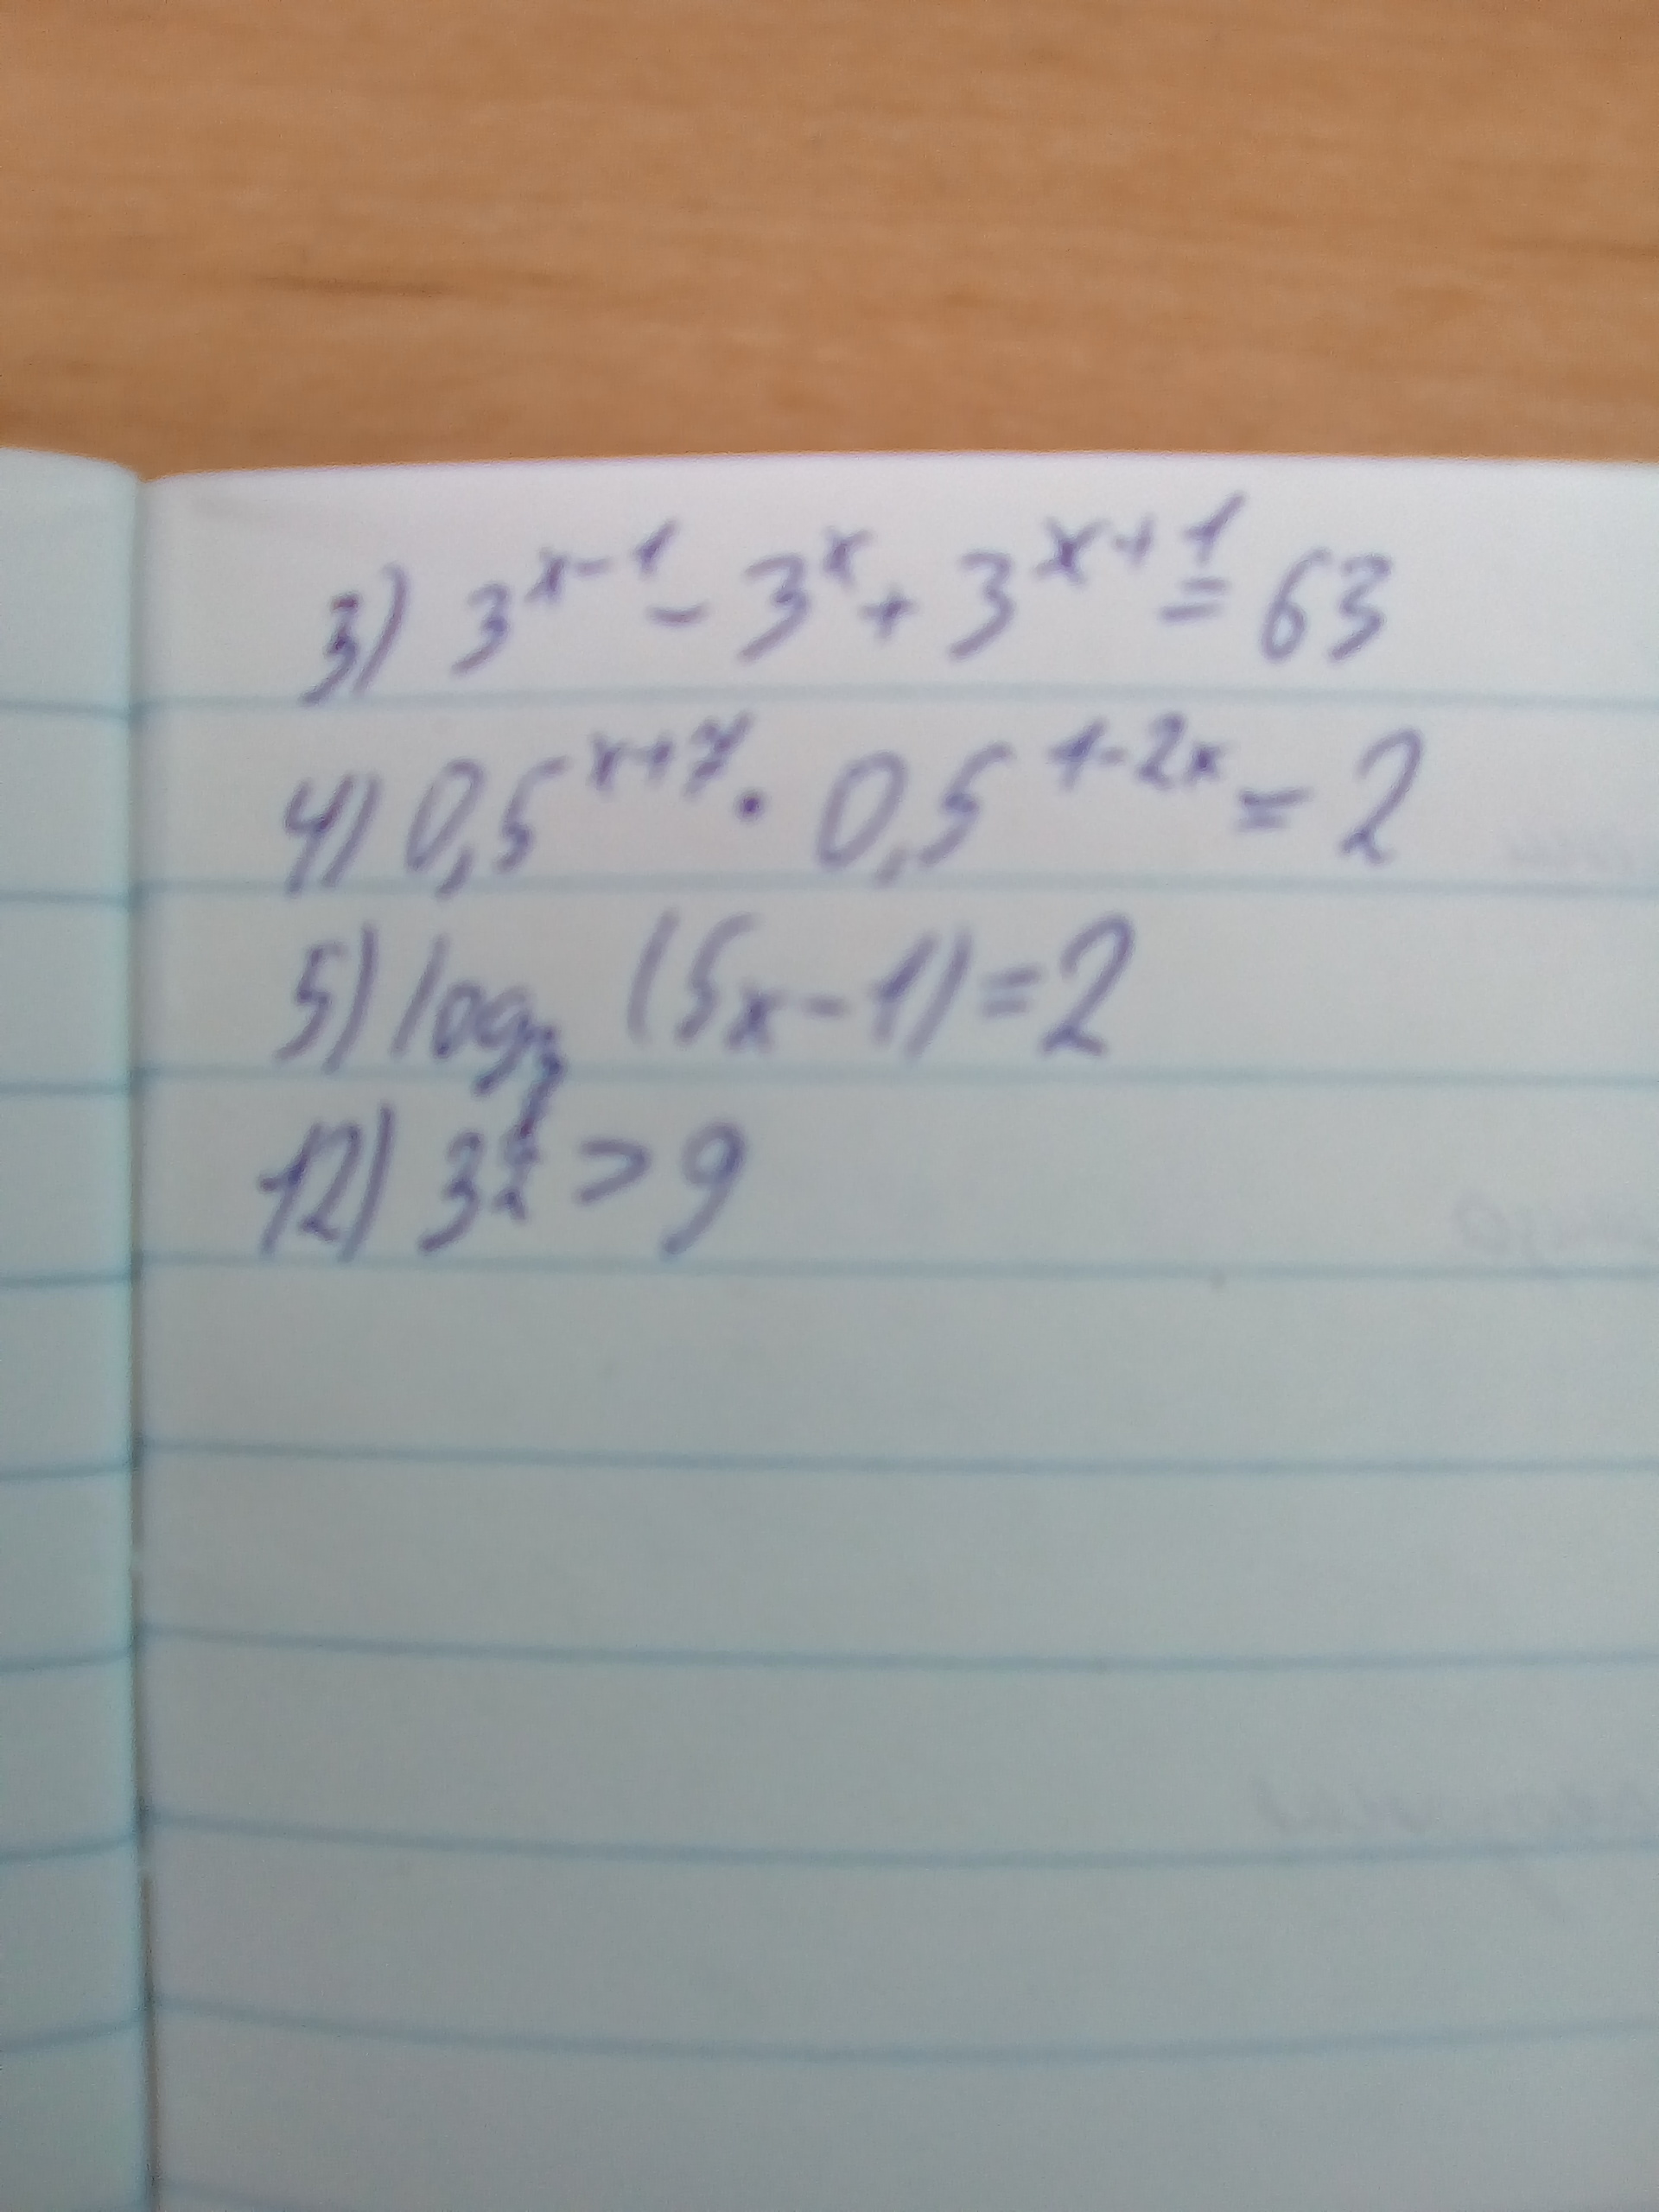 3) 3^{x-1} - 3^x + 3^{x+1} = 63
4) 0,5^{x+7} · 0,5^{1-2x} = 2
5) log_3 (5x-1) = 2
12) 3 > 9